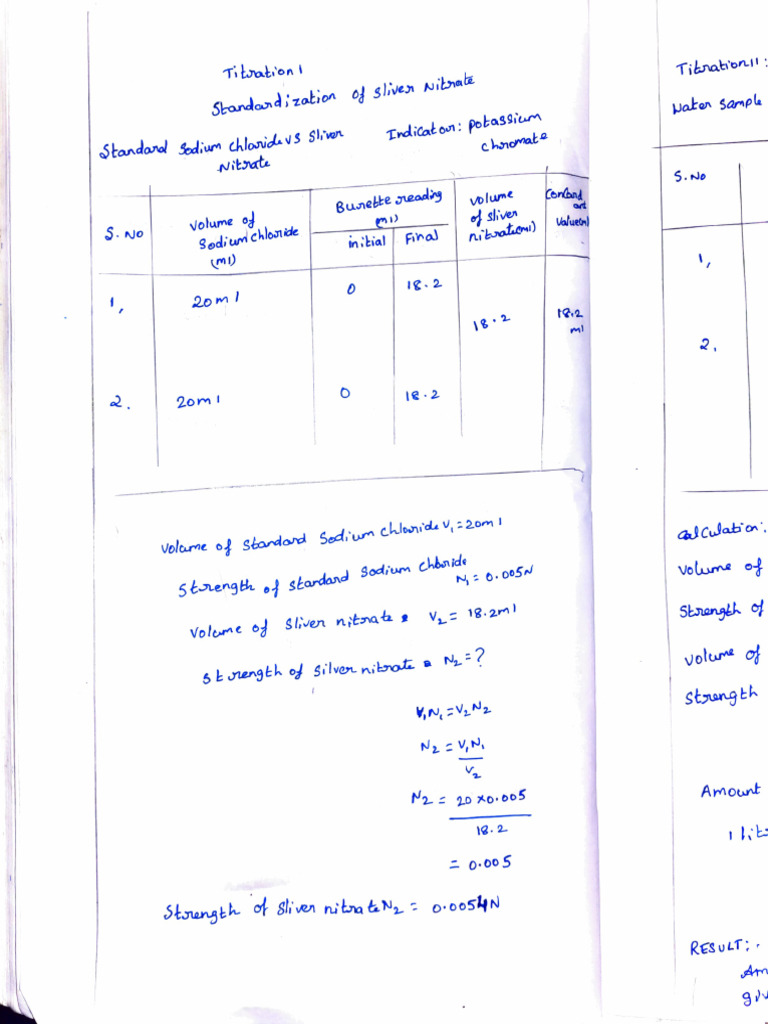 Titration 1
Standardization of Sliver Nitrate
Standard Sodium Chloride VS Sliver Nitrate
Indicator: Potassium Chromate
S.No
Volume of Sodium Chloride (ml)
Burette reading (ml)
initial Final
Volume of Sliver nitration(ml)
1, 20ml 0 18.2
18.2
18.2 ml
2. 20ml 0 18.2
Volume of Standard Sodium Chloride V1 = 20ml
Strength of Standard Sodium Chloride
N1 = 0.005N
Volume of Sliver nitrate V2 = 18.2ml
Strength of Silver nitrate N2 = ?
V1N1 = V2N2
N2 = V1N1
V2
N2 = 20 x 0.005
18.2
= 0.005
Strength of Sliver nitrate N2 = 0.0054N
Titration 11:
Water Sample
S.No
1,
2.
Calculation:
Volume of
Strength of
Volume of
Strength
Amount
1 lit
RESULT:
Am
giv